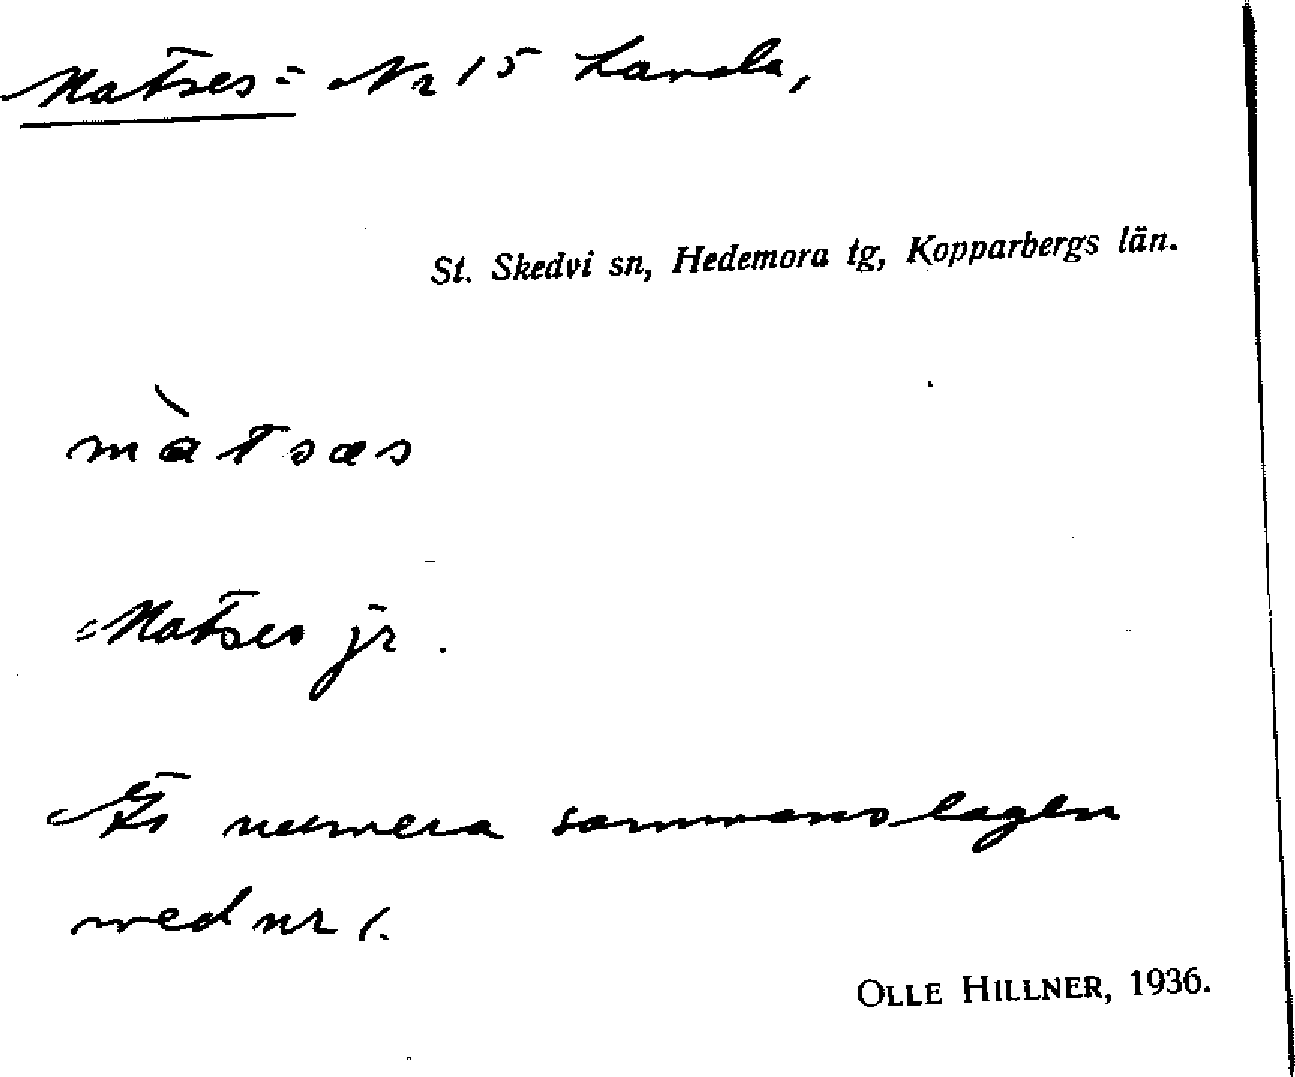 Matses = Nr 15 Landa,
St. Skedvi sn, Hedemora tg, Kopparbergs län.
màtsas
Matses jr.
Är numera sammanslagen
med nr 1.
OLLE HILLNER, 1936.